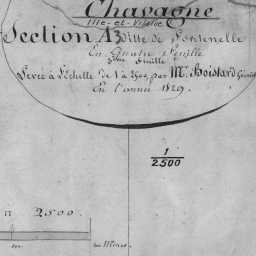 Chavagne
Ille-et-Vilaine
Section A3 Dite de Fontenelle
En Quatre Feuilles
3ème Feuille
Levée à l'échelle de 1 à 2500 par Mr. Boistard
En l'année 1829.
1
2500
2500.
Mètres